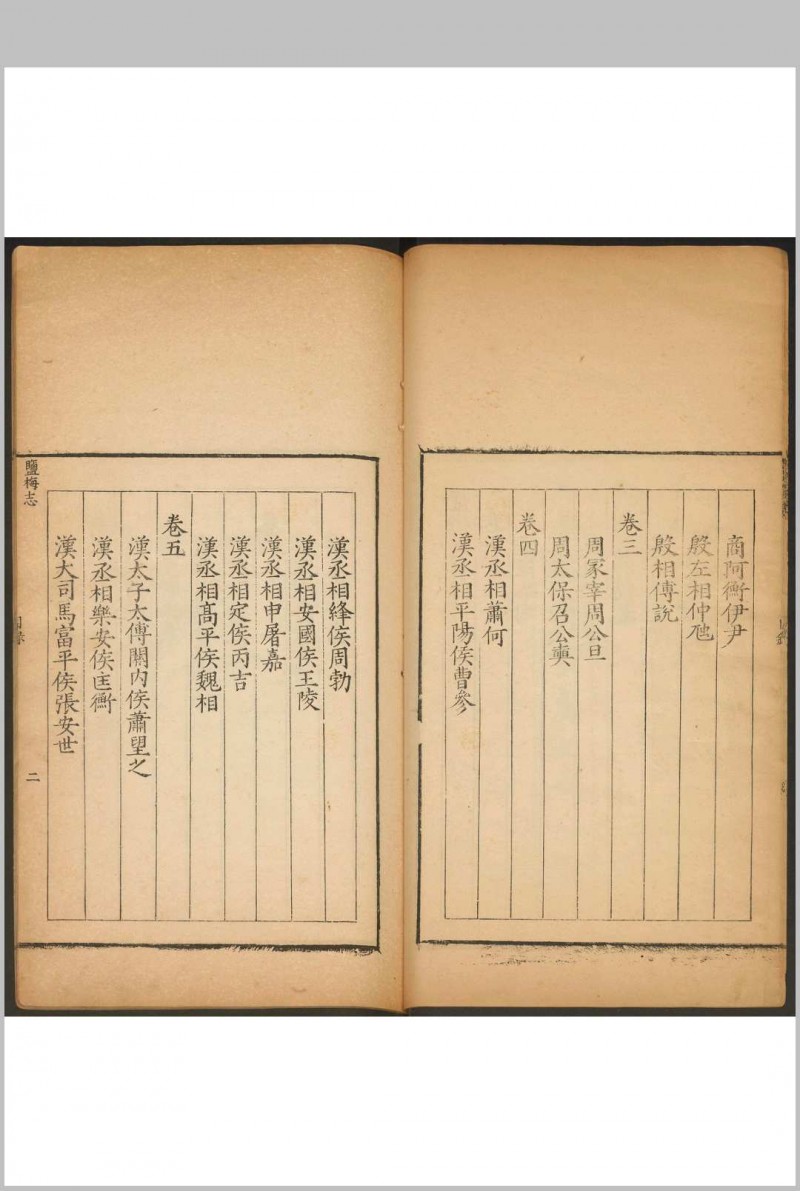 商阿衡伊尹
殷左相仲虺
殷相傅說
卷三
周冢宰周公旦
周太保召公奭
卷四
漢丞相蕭何
漢丞相平陽侯曹參
漢丞相絳侯周勃
漢丞相安國侯王陵
漢丞相申屠嘉
漢丞相定侯丙吉
漢丞相高平侯魏相
卷五
漢太子太傅關内侯蕭望之
漢丞相樂安侯匡衡
漢大司馬富平侯張安世
鹽梅志
目錄
二